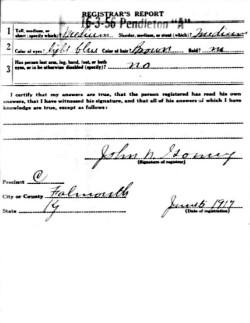 REGISTRAR'S REPORT
16-3-56 Pendleton "A"
1 Tall, medium, or short (specify which)? Medium Slender, medium, or stout (which)? Medium
2 Color of eyes? light blue Color of hair? Brown Bald? no
3 Has person lost arm, leg, hand, foot, or both eyes, or is he otherwise disabled (specify)? no
I certify that my answers are true, that the person registered has read his own answers, that I have witnessed his signature, and that all of his answers of which I have knowledge are true, except as follows:
John N.
(Signature of registrar)
Precinct C
City or County Falmouth
State Ky
June 5 1917
(Date of registration)